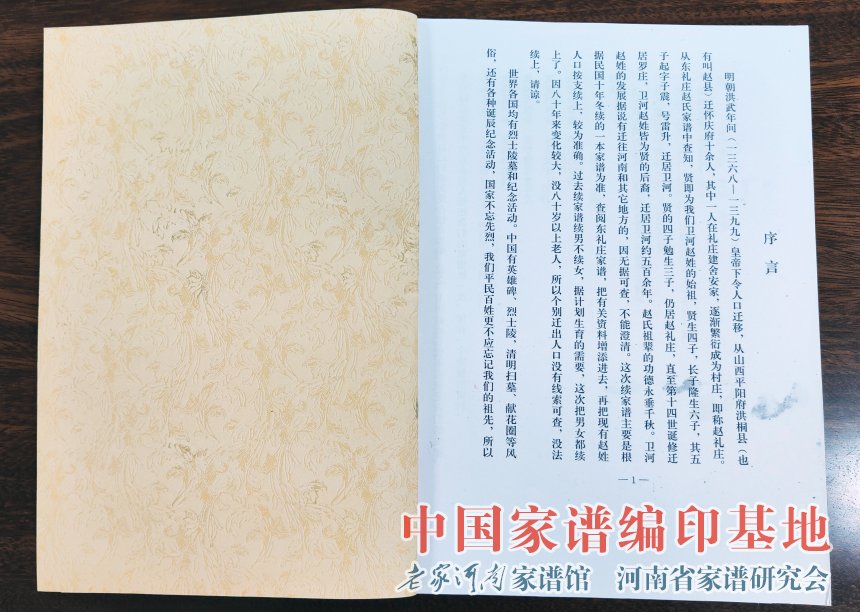 序言
明朝洪武年间（一三六八—一三九九）皇帝下令人口迁移，从山西平阳府洪桐县（也
有叫赵县）迁怀庆府十余人，其中一人在礼庄建舍安家，逐渐繁衍成为村庄，即称赵礼庄。
从东礼庄赵氏家谱中查知，贤即为我们卫河赵姓的始祖，贤生四子，长子隆生六子，其五
子起字子震，号雷升，迁居卫河。贤的四子勉生三子，仍居赵礼庄，直至第十四世诞修迁
居罗庄，卫河赵姓皆为贤的后裔，迁居卫河约五百余年。赵氏祖辈的功德永垂千秋。卫河
赵姓的发展据说有迁往河南和其它地方的，因无据可查，不能澄清。这次续家谱主要是根
据民国十年冬续的一本家谱为准，查阅东礼庄家谱，把有关资料增添进去，再把现有赵姓
人口按支续上，较为准确。过去续家谱续男不续女，据计划生育的需要，这次把男女都续
上了。因八十年来变化较大，没八十岁以上老人，所以个别迁出人口没有线索可查，没法
续上，请谅。
世界各国均有烈士陵墓和纪念活动。中国有英雄碑、烈士陵，清明扫墓、献花圈等风
俗，还有各种诞辰纪念活动，国家不忘先烈，我们平民百姓更不应忘记我们的祖先，所以
—1—
中国家谱编印基地
老家河南家谱馆 河南省家谱研究会